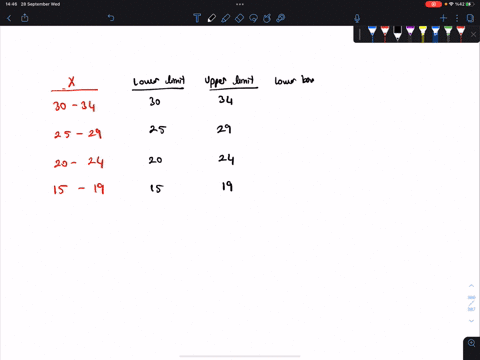 14:46 28 September Wed
%42
X Lower limit Upper limit Lower bou
30 - 34 30 34
25 - 29 25 29
20 - 24 20 24
15 - 19 15 19